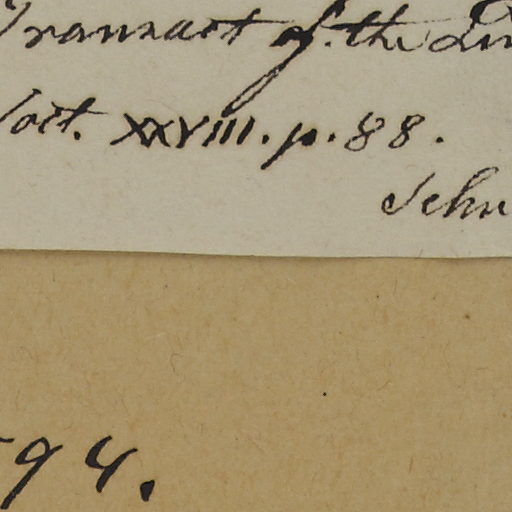 Transact of. the Lin
Soct. XXVIII. p. 88.
Schu
94.